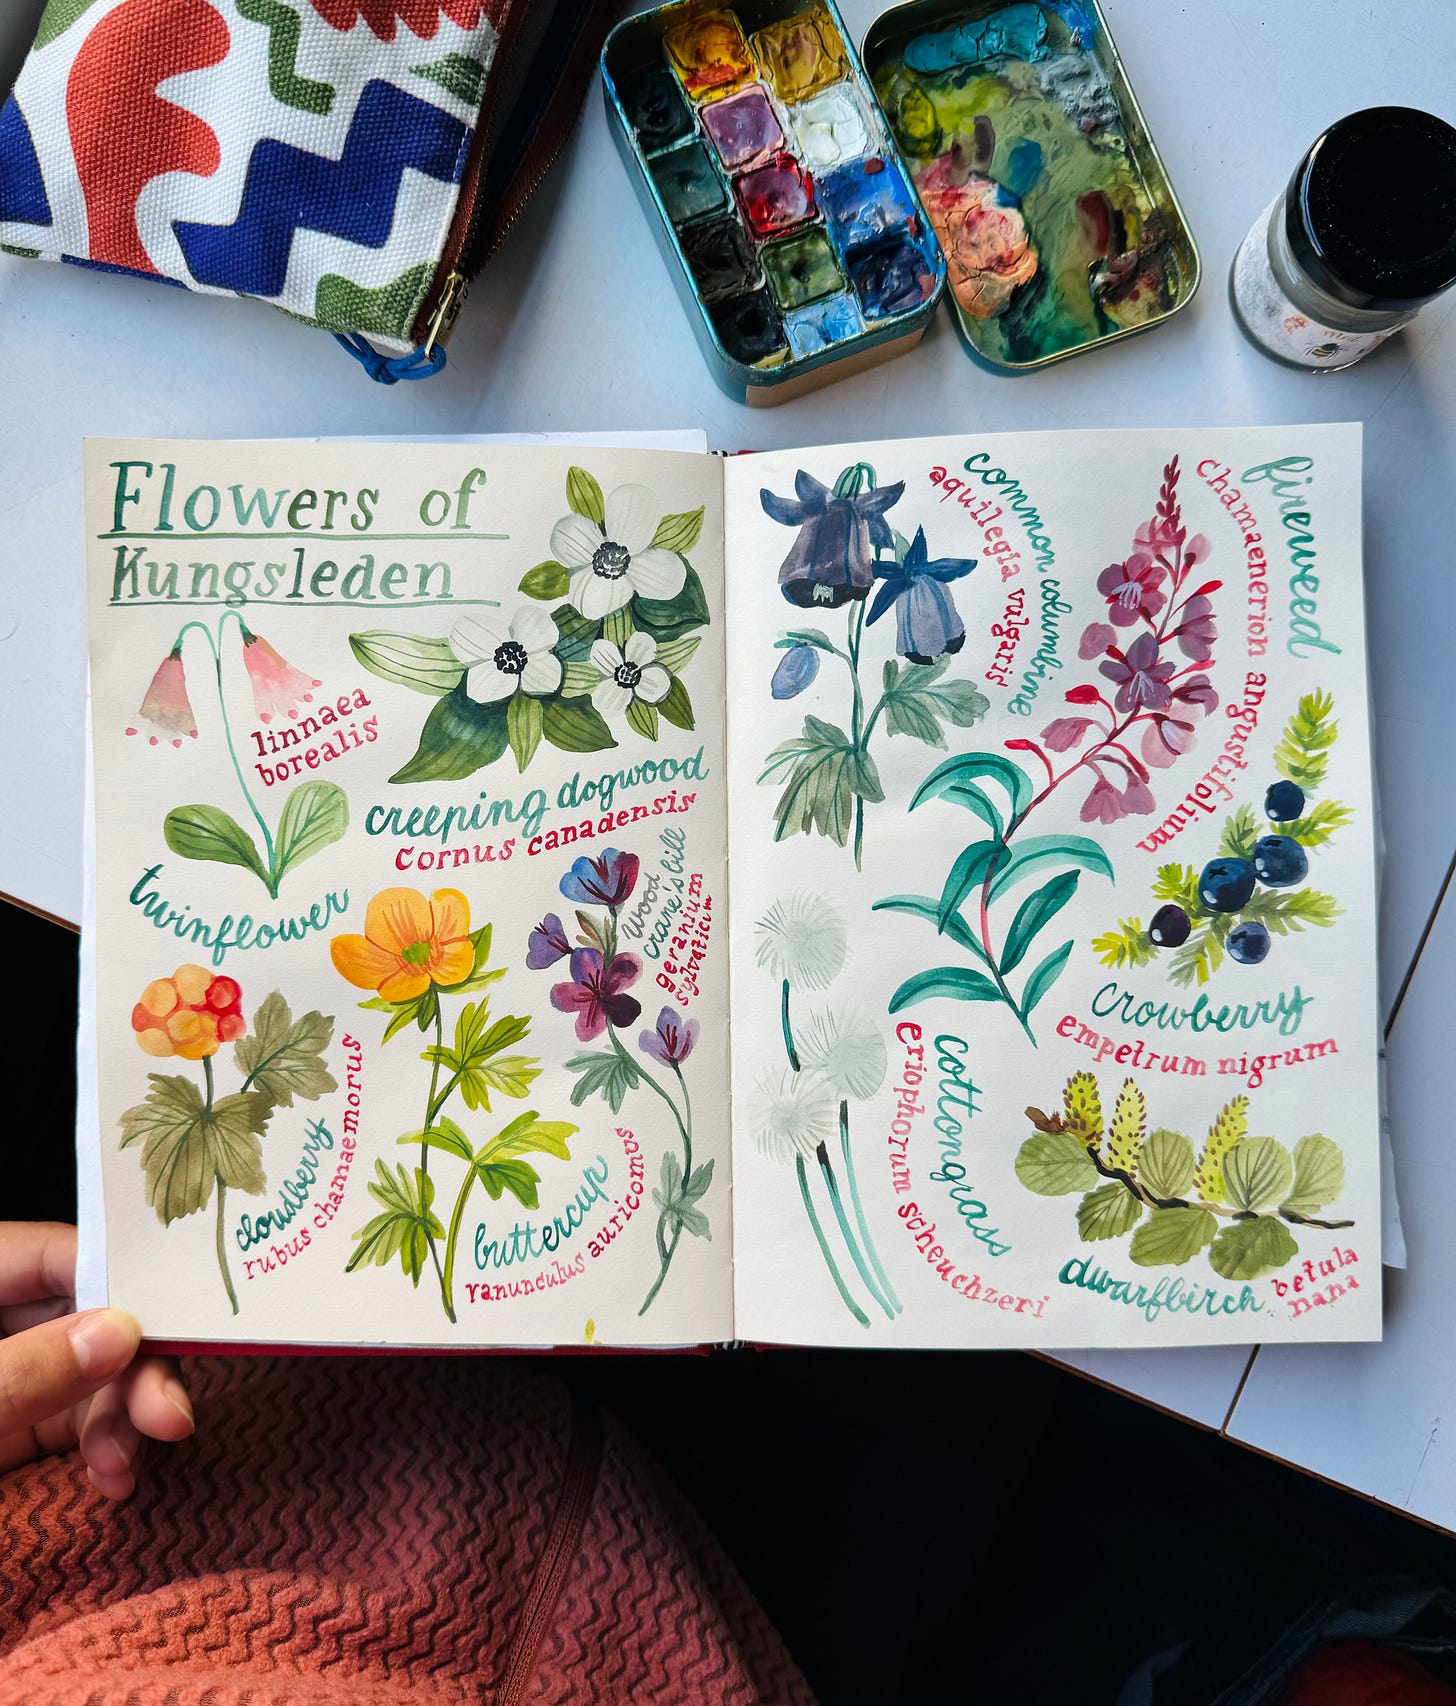 Flowers of
Kungsleden
linnaea
borealis
twinflower
creeping dogwood
cornus canadensis
cloudberry
rubus chamaemorus
buttercup
ranunculus auricomus
wood
crane's bill
geranium
sylvaticum
common columbine
aquilegia vulgaris
fireweed
chamaenerion angustifolium
crowberry
empetrum nigrum
cottongrass
eriophorum scheuchzeri
dwarfbirch
betula
nana